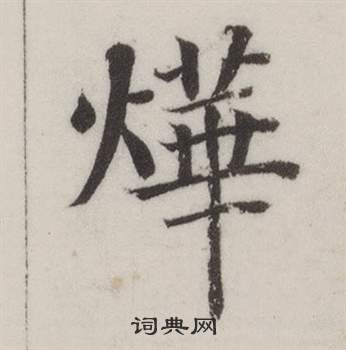 燁
词典网